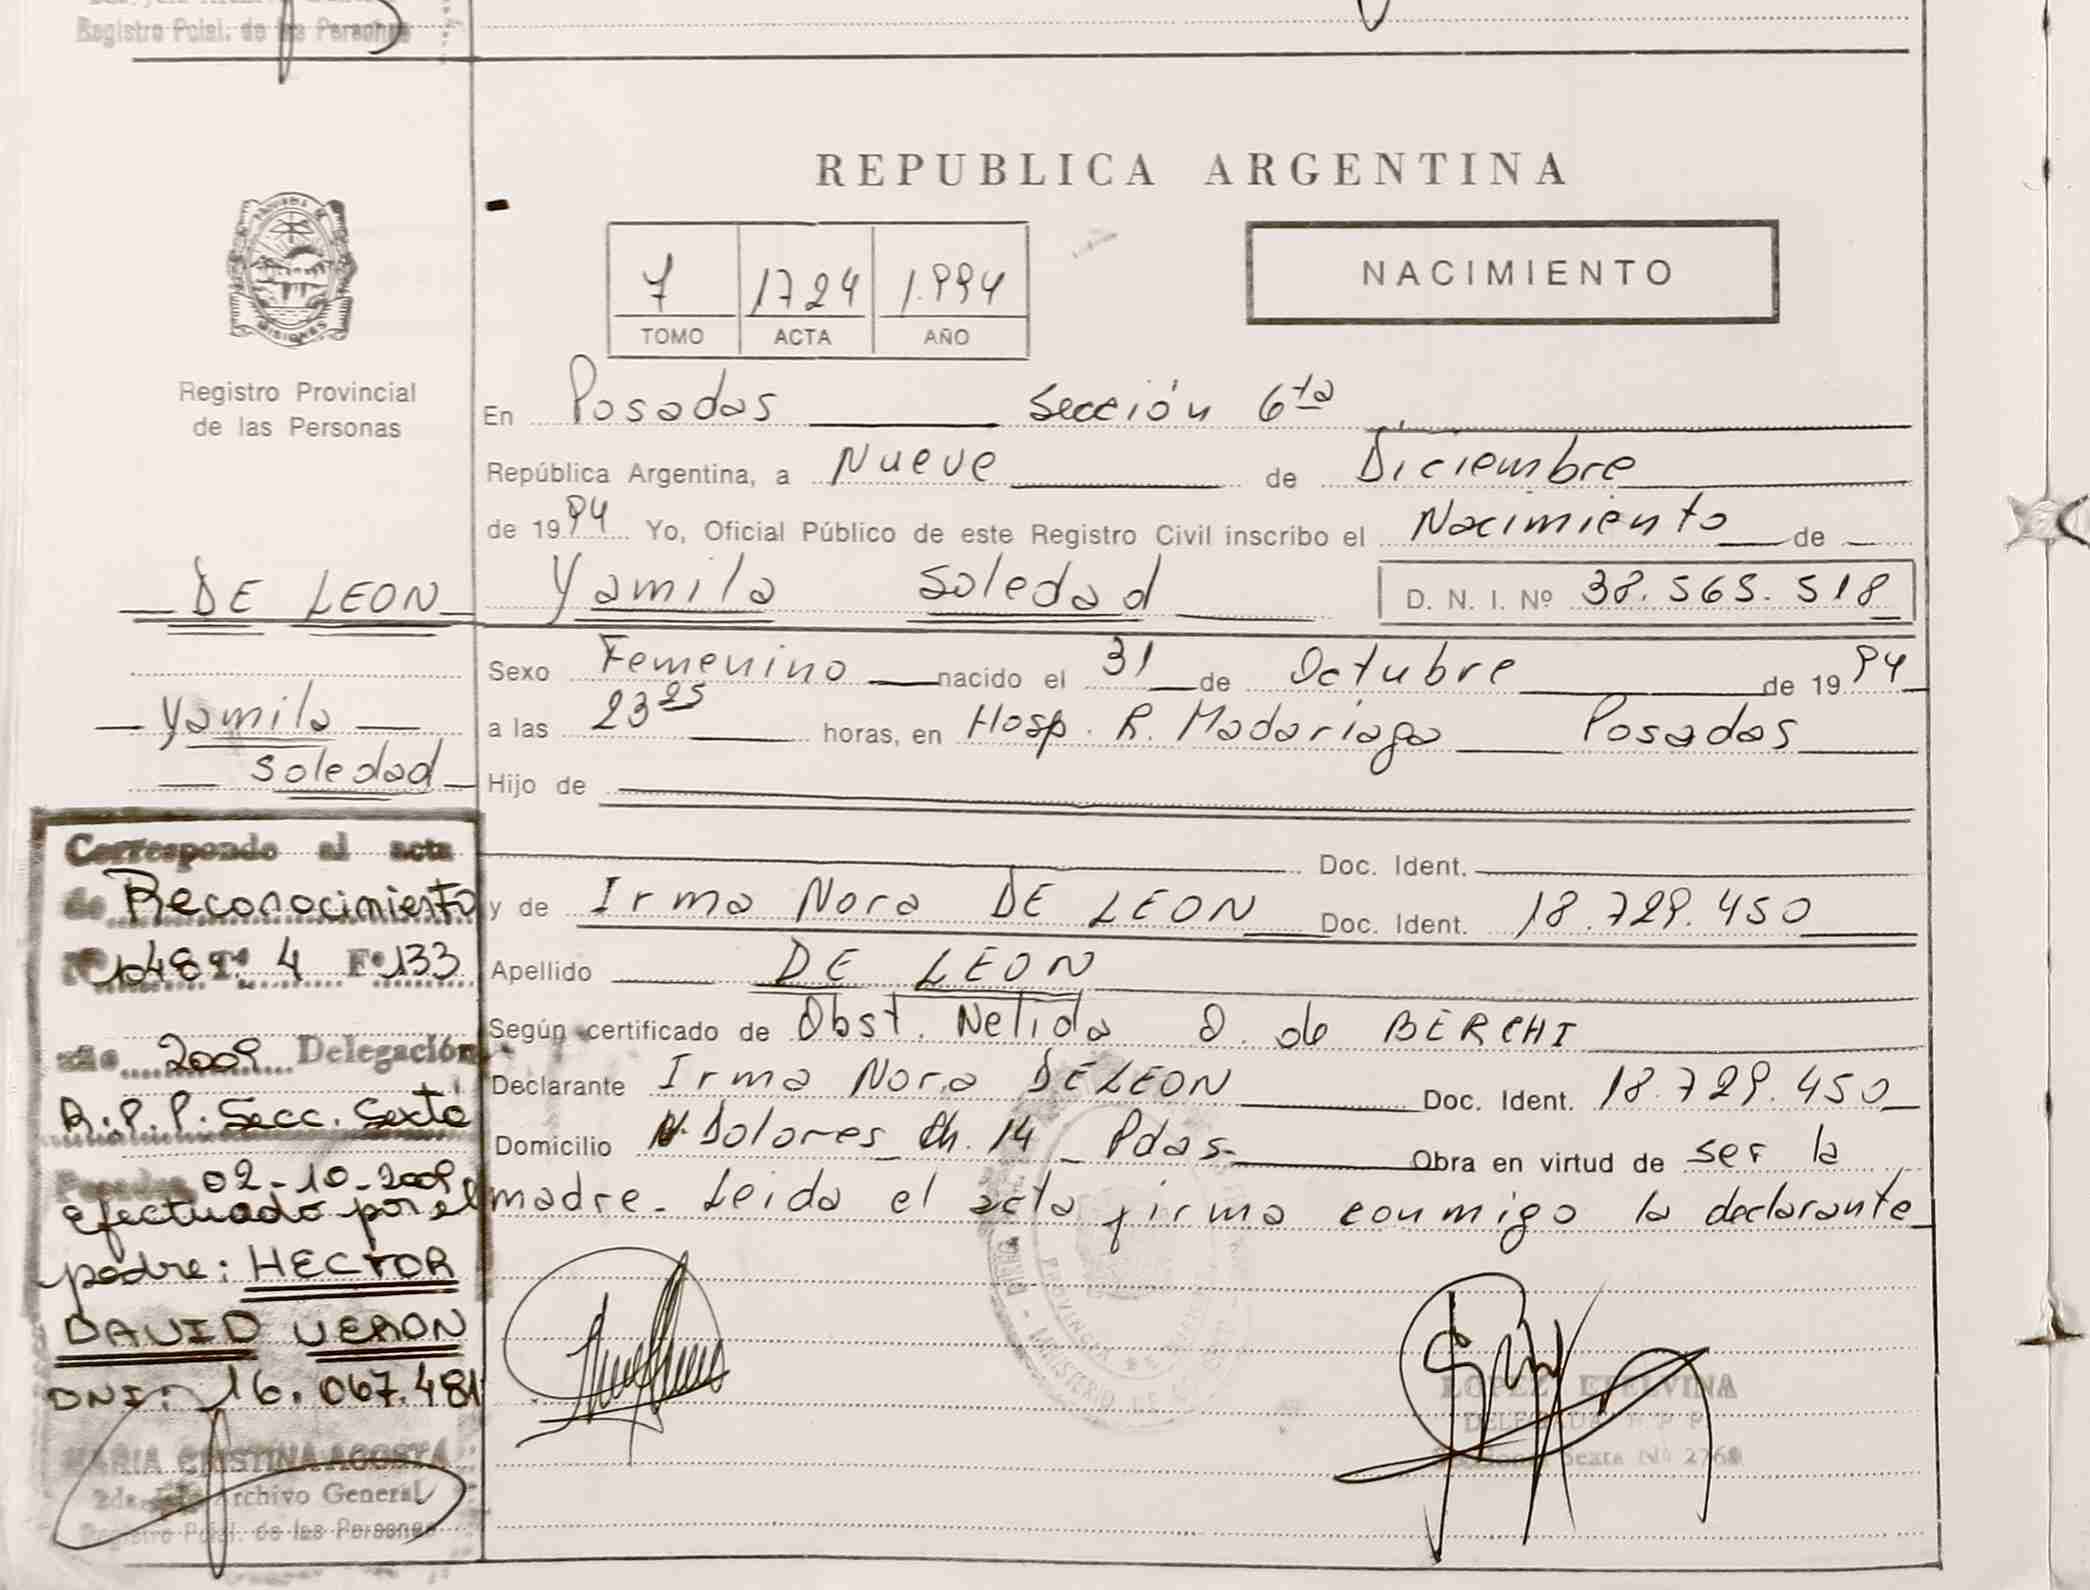 Registro Pcial. de las Personas
REPUBLICA ARGENTINA
NACIMIENTO
7 1724 1.994
TOMO ACTA AÑO
MISIONES
Registro Provincial
de las Personas
En Posadas Sección 6ta
República Argentina, a Nueve de Diciembre
de 1994 Yo, Oficial Público de este Registro Civil inscribo el Nacimiento de
DE LEON Yamila Soledad D. N. I. Nº 38.565.518
Sexo Femenino nacido el 31 de Octubre de 1994
Yamila
Soledad
a las 23 25 horas, en Hosp. R. Madariaga Posadas
Hijo de
Doc. Ident.
y de Irma Nora DE LEON Doc. Ident. 18.729.450
Apellido DE LEON
Según certificado de Obst. Nelida O. de BERCHI
Declarante Irma Nora DE LEON Doc. Ident. 18.729.450
Domicilio N. Dolores Ch. 14 Pdas. Obra en virtud de ser la
madre. Leida el acta firma conmigo la declarante
Corresponde al acta
de Reconocimiento
T° 4 F° 133
año 2009 Delegación
R.P.P. Secc. Sexta
Posadas 02-10-2009
efectuado por el
padre: HECTOR
DAVID VERON
DNI: 16.067.481
MARIA CRISTINA ACOSTA
Archivo General
Registro Pcial. de las Personas
PROVINCIA DE
MINISTERIO DE
LOPEZ ETELVINA
DELEGADA R P P
Sexta Nº 2768